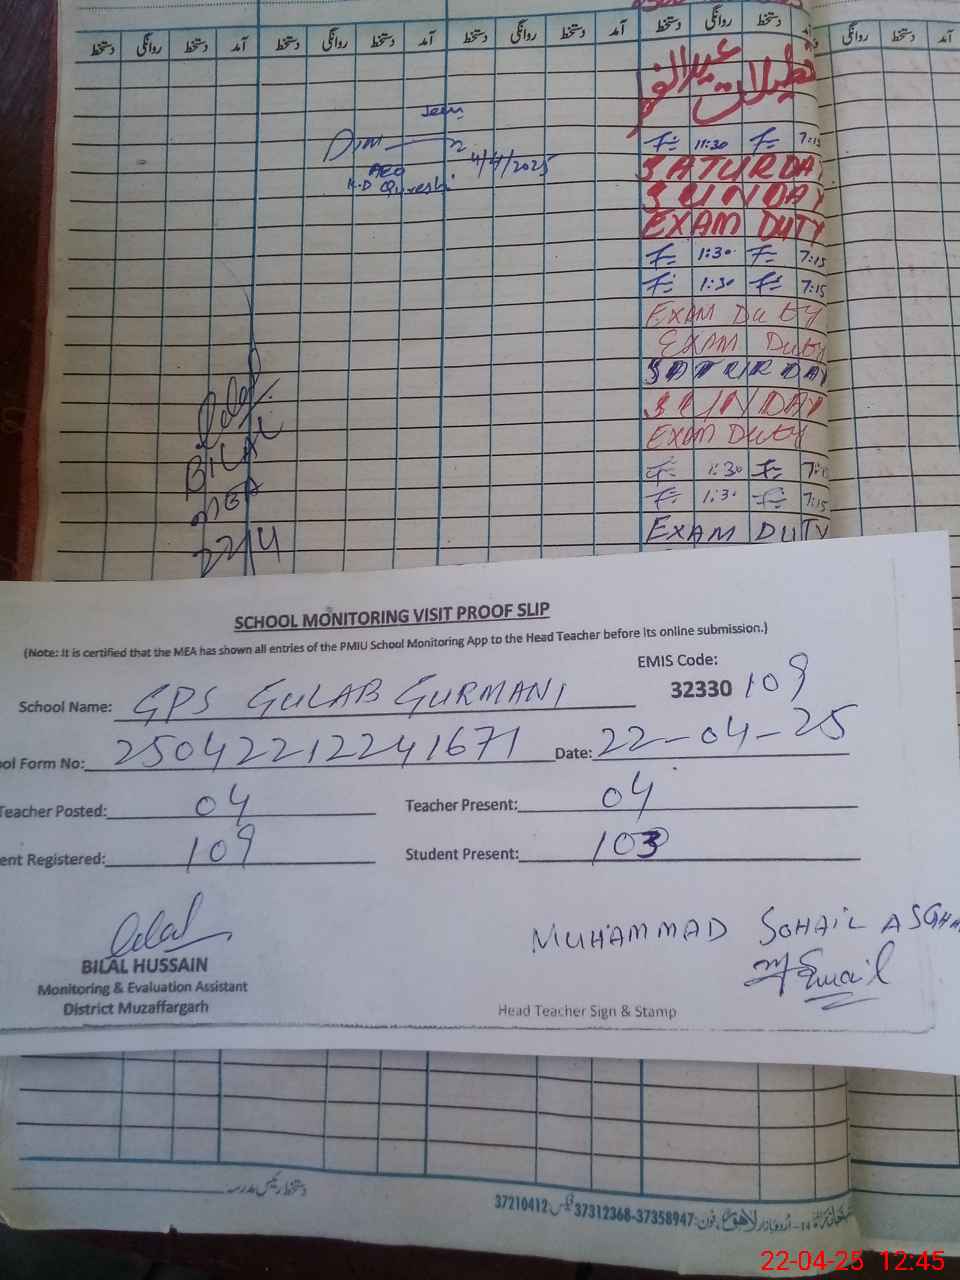 دستخط روانگی دستخط آمد دستخط روانگی دستخط آمد دستخط روانگی دستخط آمد دستخط روانگی دستخط روانگی دستخط آمد
تعطیلات عیدالفطر
Seen
11:30 7:15
AEO 4/4/2025
K.D Qureshi
SATURDAY
SUNDAY
EXAM DUTY
1:30 7:15
1:30 7:15
EXAM Duty
EXAM Duty
SATURDAY
SUNDAY
EXAM Duty
BILAL
1:30
MEA
1:30 7:15
22/4
EXAM DUTY
SCHOOL MONITORING VISIT PROOF SLIP
(Note: It is certified that the MEA has shown all entries of the PMIU School Monitoring App to the Head Teacher before its online submission.)
EMIS Code:
32330 109
School Name: GPS GULAB GURMANI
ool Form No: 25042212241671 Date: 22-04-25
Teacher Posted: 04 Teacher Present: 04
ent Registered: 109 Student Present: 103
Bilal
MUHAMMAD SOHAIL ASGHA
BILAL HUSSAIN
Monitoring & Evaluation Assistant
District Muzaffargarh
Head Teacher Sign & Stamp
دستخط رئیس مدرسہ
اُردو بازار لاہور فون: 37358947-37312368 فیکس: 37210412
22-04-25 12:45